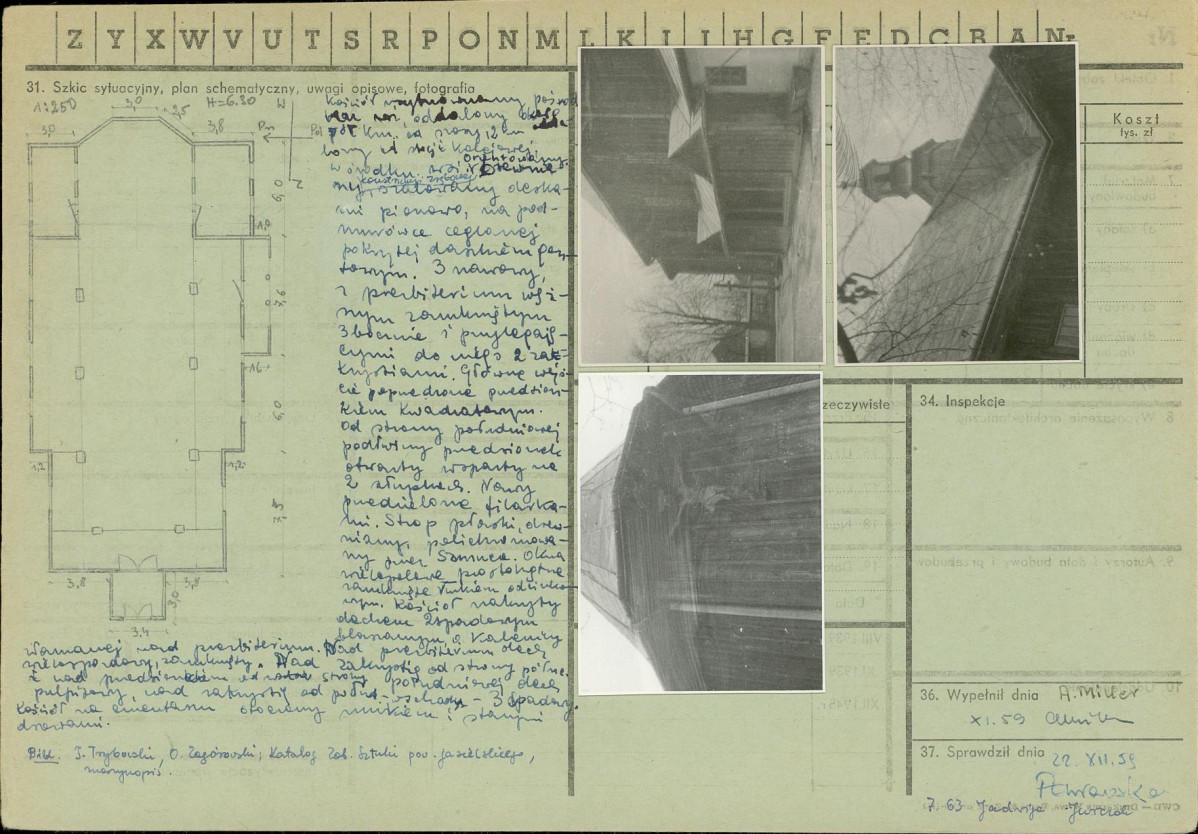 Z Y X W V U T S R P O N M L K J I H G F E D C B A Nr
31. Szkic sytuacyjny, plan schematyczny, uwagi opisowe, fotografia
1:250
H=6.30
3,0
2,5
3,0
3,8
Kościół usytuowany pośród
oddalony około
pół km. od szosy, 2 km
od stacji Kolejowej
w środku wsi. Orientowany.
Drewnia-
konstrukcji zrębowej
ny, szalowany deska-
mi pionowo, na pod-
murówce ceglanej
pokrytej daszkiem gon-
towym. 3 nawowy,
z prezbiterium węż-
szym zamkniętym
3bocznie i przylegają-
cymi do niego 2 zak-
rystiami. Główne wejś-
cie poprzedzone przedsion-
kiem kwadratowym.
Od strony południowej
podłużny przedsionek
otwarty wsparty na
2 słupkach. Nawy
przedzielone filarka-
mi. Strop płaski, drew-
niany, polichromowa-
ny przez Okna
prostokątne
zamknięte łukiem odcinko-
wym. Kościół nakryty
dachem 2spadowym
blaszanym o Kalenicy
łamanej nad prezbiterium. Nad prezbiterium dach
wielospadowy, zamknięty. Nad zakrystią od strony półno.
i nad przedsionkiem od strony południowej dach
pulpitowy, nad zakrystią od połud-wschodu - 3spadowy.
Kościół na cmentarzu otoczony murkiem i starymi
drzewami.
6,0
1,0
7,6
1,6
6,0
1,2
1,2
7,5
3,8
3,8
3,0
3,4
Bibl. T. Trybowski, O. Zagórowski, Katalog Zab. Sztuki pow. jasielskiego,
maszynopis.
Koszt
tys. zł
zeczywiste
34. Inspekcje
36. Wypełnił dnia A. Miller
XI. 59
37. Sprawdził dnia
22. XII. 59
7. 63 Jadwiga